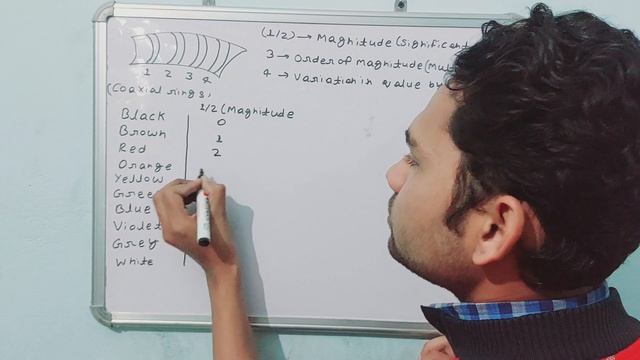 (1/2) → Magnitude (Significant
3 → Order of Magnitude (Mul
4 → Variation in value by
1 2 3 4
(Coaxial rings)
1/2 (Magnitude
Black 0
Brown 1
Red 2
Orange
Yellow
Gree
Blue
Violet
Grey
White